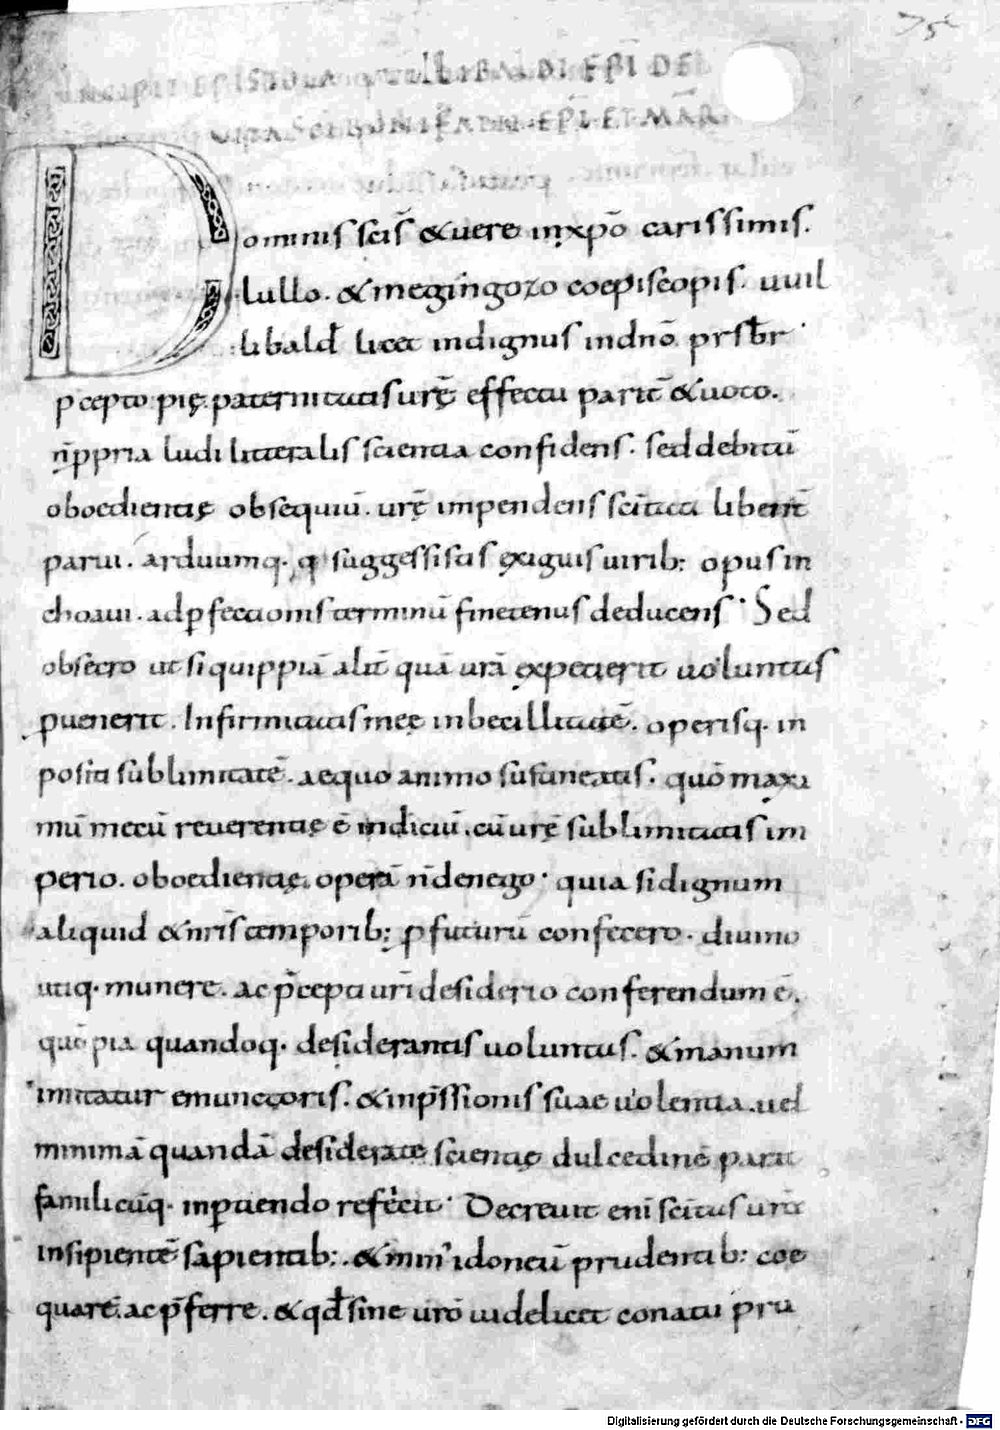 75
INCIPIT EPISTOLA VUILLIBALDI EPI DE
VITA SCI BONIFATII EPI ET MAR
Dominis scis & uere inxpo carissimis.
lullo. & megingozo coepiscopis. uuil
libald licet indignus indno prsbr
pcepto pię paternitatis urę effectu parit & uoto.
n ppria ludi litteralis scientia confidens. sed debitu
oboedientię obsequiu. urę impendens scitati libent
parui. arduumq. qd suggessistis exiguis uirib: opus in
choaui. ad pfectionis terminu finetenus deducens. Sed
obsecro ut si quippia alit qua ura expetierit uoluntas
puenerit. Infirmitatis meę inbecillitate. operisq. in
posita sublimitate. aequo animo sufuneatis. quo maxi
mu mecu reuerentię e indiciu. cu urę sublimitatis im
perio. oboedientię opera n denego. quia si dignum
aliquid & nris temporib: pfuturu confecero. diuino
utiq. munere. ac pcepti uri desiderio conferendum e.
quo pia quandoq. desiderantis uoluntas. & manum
imitatur emunctoris. & inpssionis suae uiolentia. uel
minima quanda desiderate scientię dulcedine parit
familicuq. inptiendo refecit. Decreuit eni scitas ura
insipiente sapientib:. & min idoneu prudentib: coe
quare. ac pferre. & qd sine uro uidelicet conatu pru
Digitalisierung gefördert durch die Deutsche Forschungsgemeinschaft - DFG